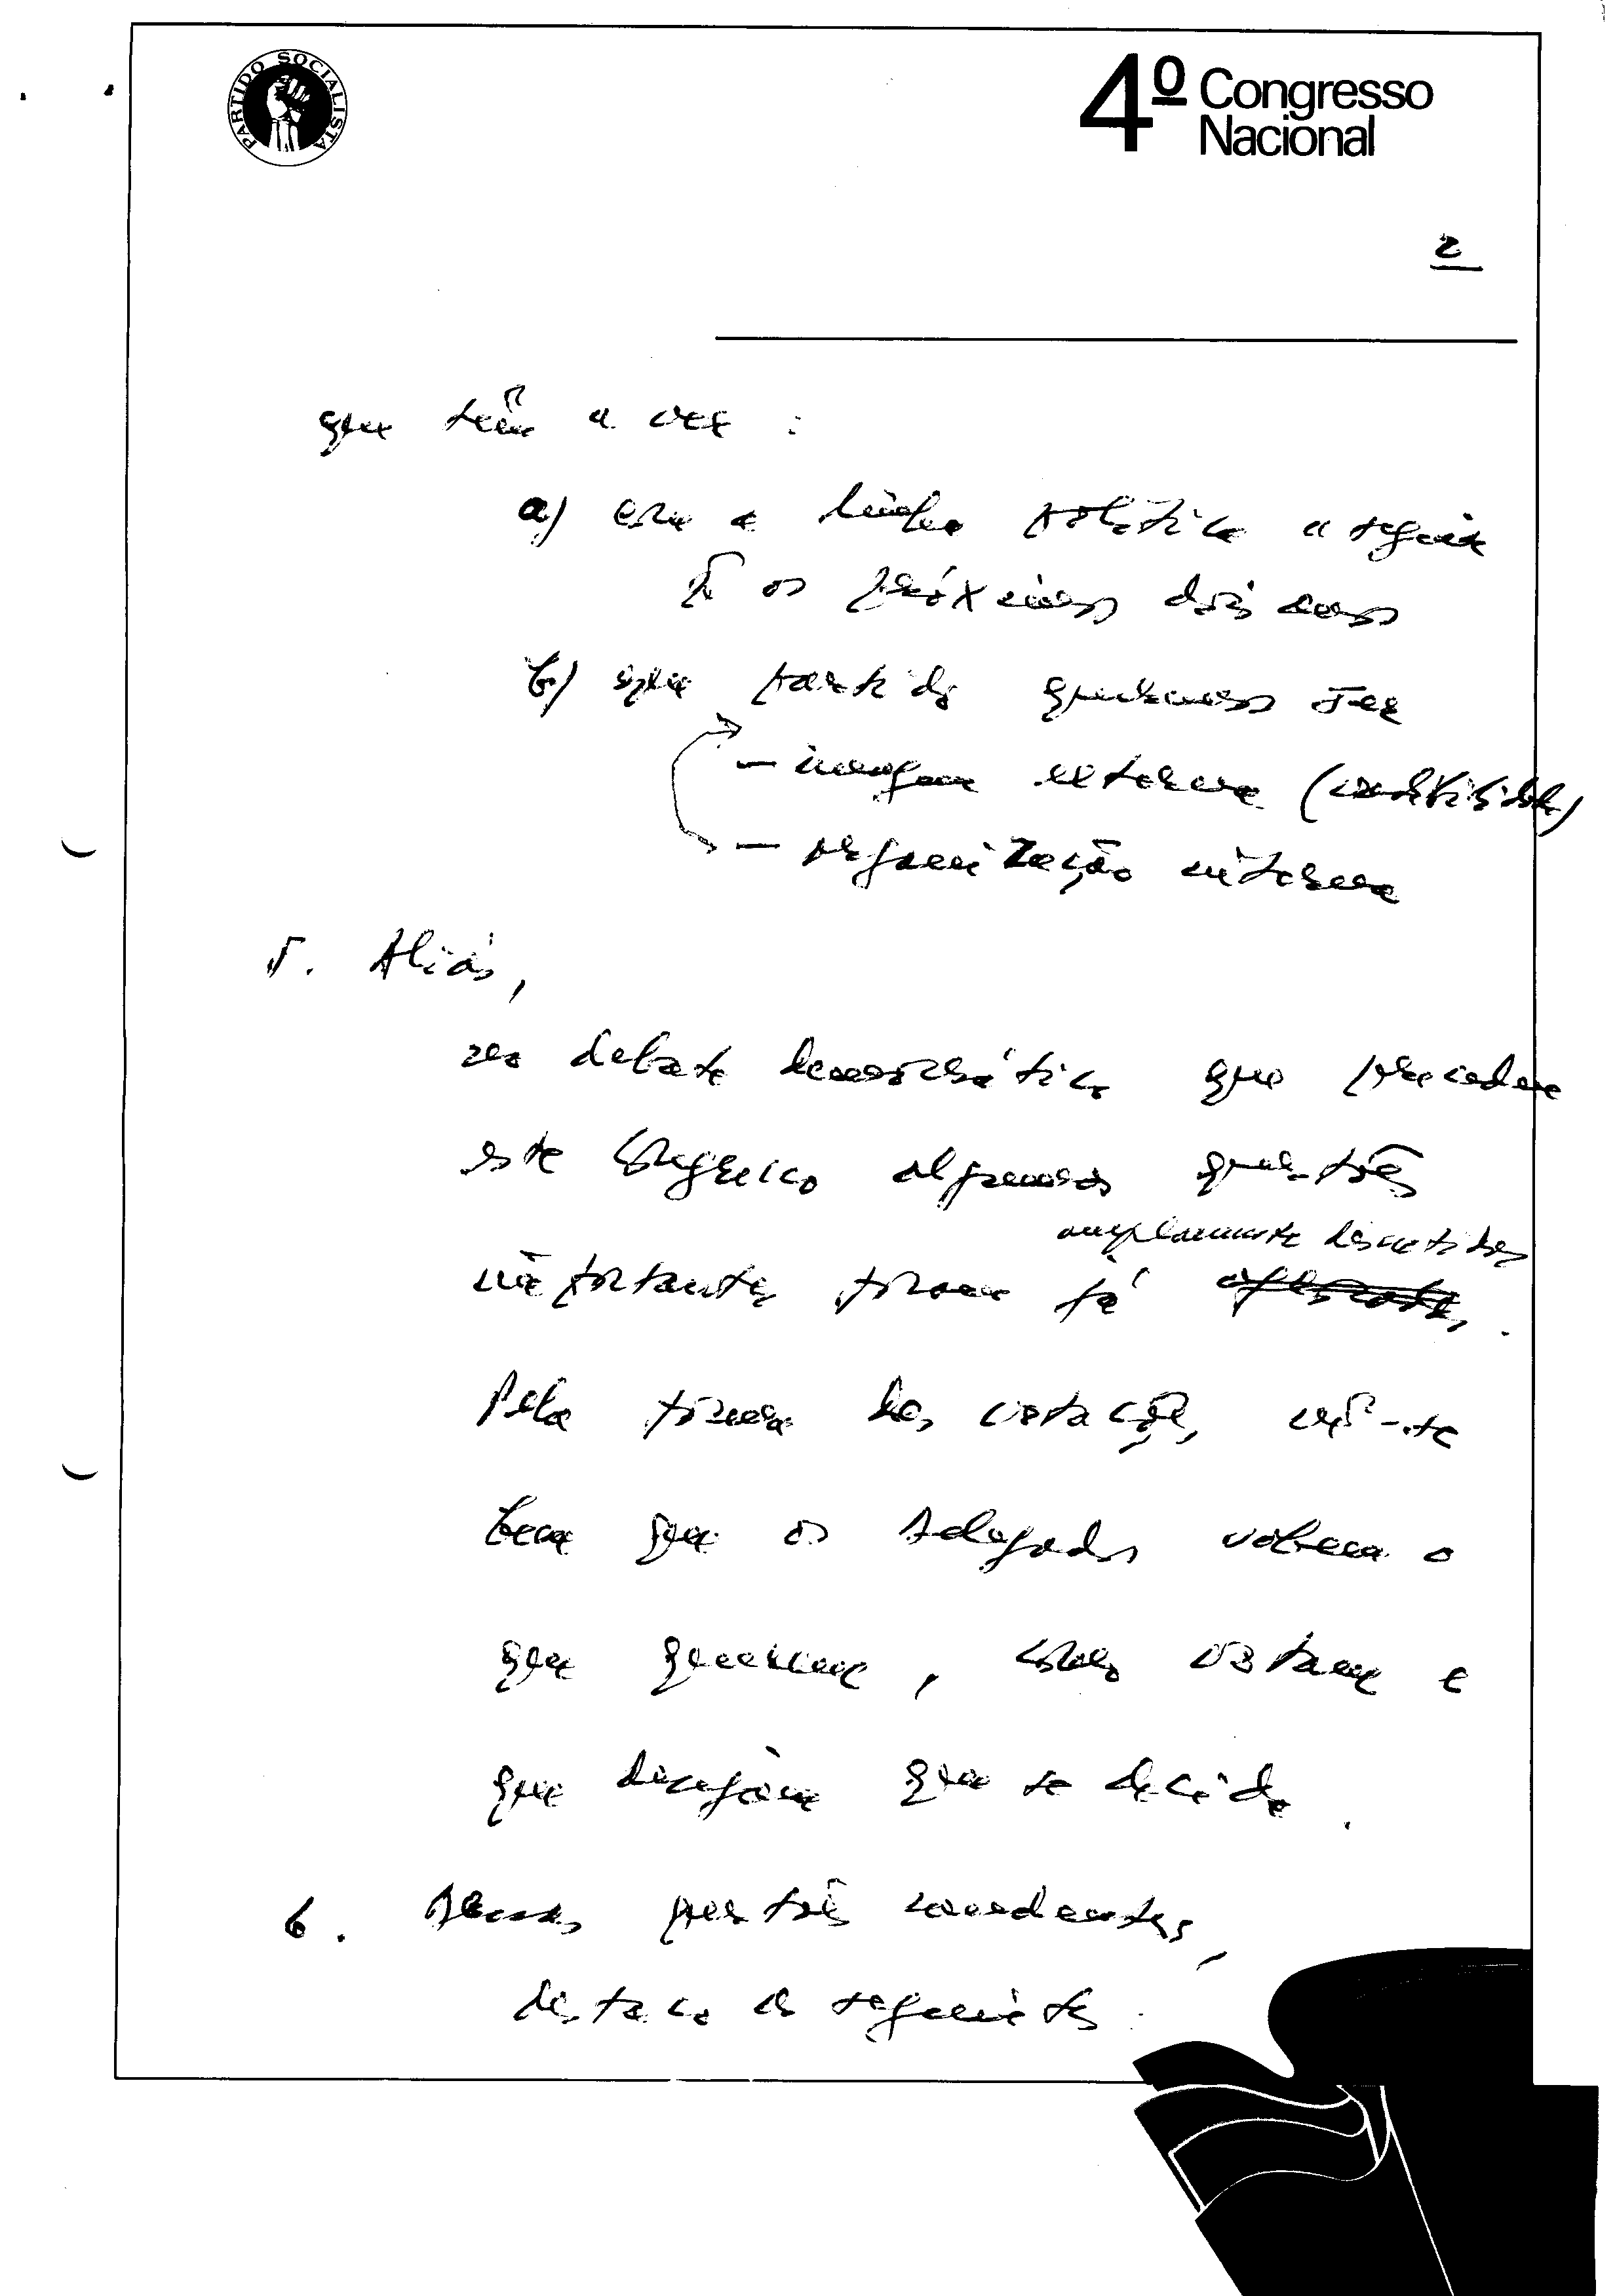 PARTIDO SOCIALISTA
4º Congresso
Nacional
2
que têm a ver :
a) com a linha política a seguir
p/ os próximos dois anos
b) que partido queremos ser
— imagem externa (credibilidade)
— organização interna
5. Aliás,
no debate democrático que precedeu
este Congresso algumas questões
amplamente discutidas
importantes foram já
Pela forma das votações, vê-se
bem que os delegados sabem o
que querem, como votam e
que desejam que se decida.
6. questões candentes,
destaco as seguintes :